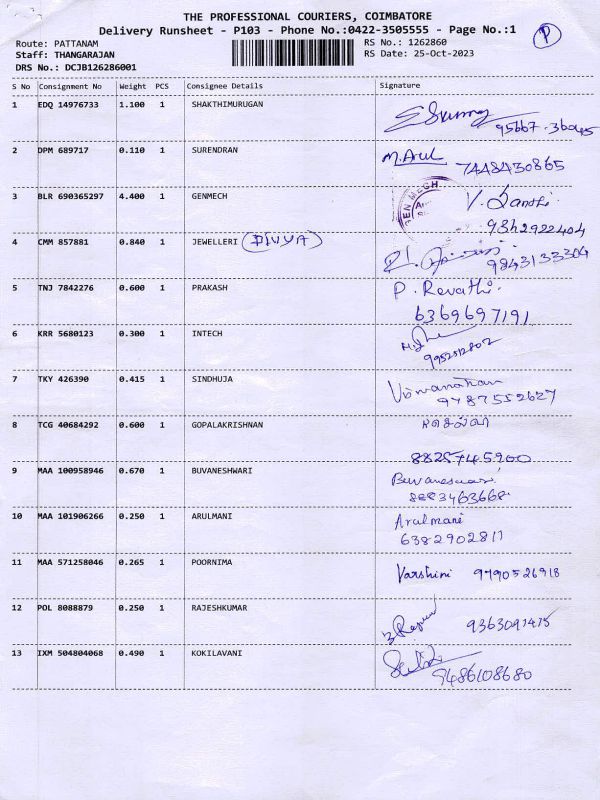 THE PROFESSIONAL COURIERS, COIMBATORE
Delivery Runsheet - P103 - Phone No.:0422-3505555 - Page No.:1
P
Route: PATTANAM
RS No.: 1262860
Staff: THANGARAJAN
RS Date: 25-Oct-2023
DRS No.: DCJB126286001
S No Consignment No Weight PCS Consignee Details Signature
1 EDQ 14976733 1.100 1 SHAKTHIMURUGAN
95667-36045
2 DPM 689717 0.110 1 SURENDRAN M.Arul
7448430865
3 BLR 690365297 4.400 1 GENMECH GEN MECH V. Santhi
9342922404
4 CMM 857881 0.840 1 JEWELLERI (DIVYA)
9843133304
5 TNJ 7842276 0.600 1 PRAKASH P. Revathi.
6369697191
6 KRR 5680123 0.300 1 INTECH
9952512802
7 TKY 426390 0.415 1 SINDHUJA Viswanathan
9787552627
8 TCG 40684292 0.600 1 GOPALAKRISHNAN
8825745900
9 MAA 100958946 0.670 1 BUVANESHWARI Buvaneswari
8883463668
10 MAA 101906266 0.250 1 ARULMANI Arulmani
6382902811
11 MAA 571258046 0.265 1 POORNIMA Varshini 9790526918
12 POL 8088879 0.250 1 RAJESHKUMAR 9363091415
13 IXM 504804068 0.490 1 KOKILAVANI
9486108680